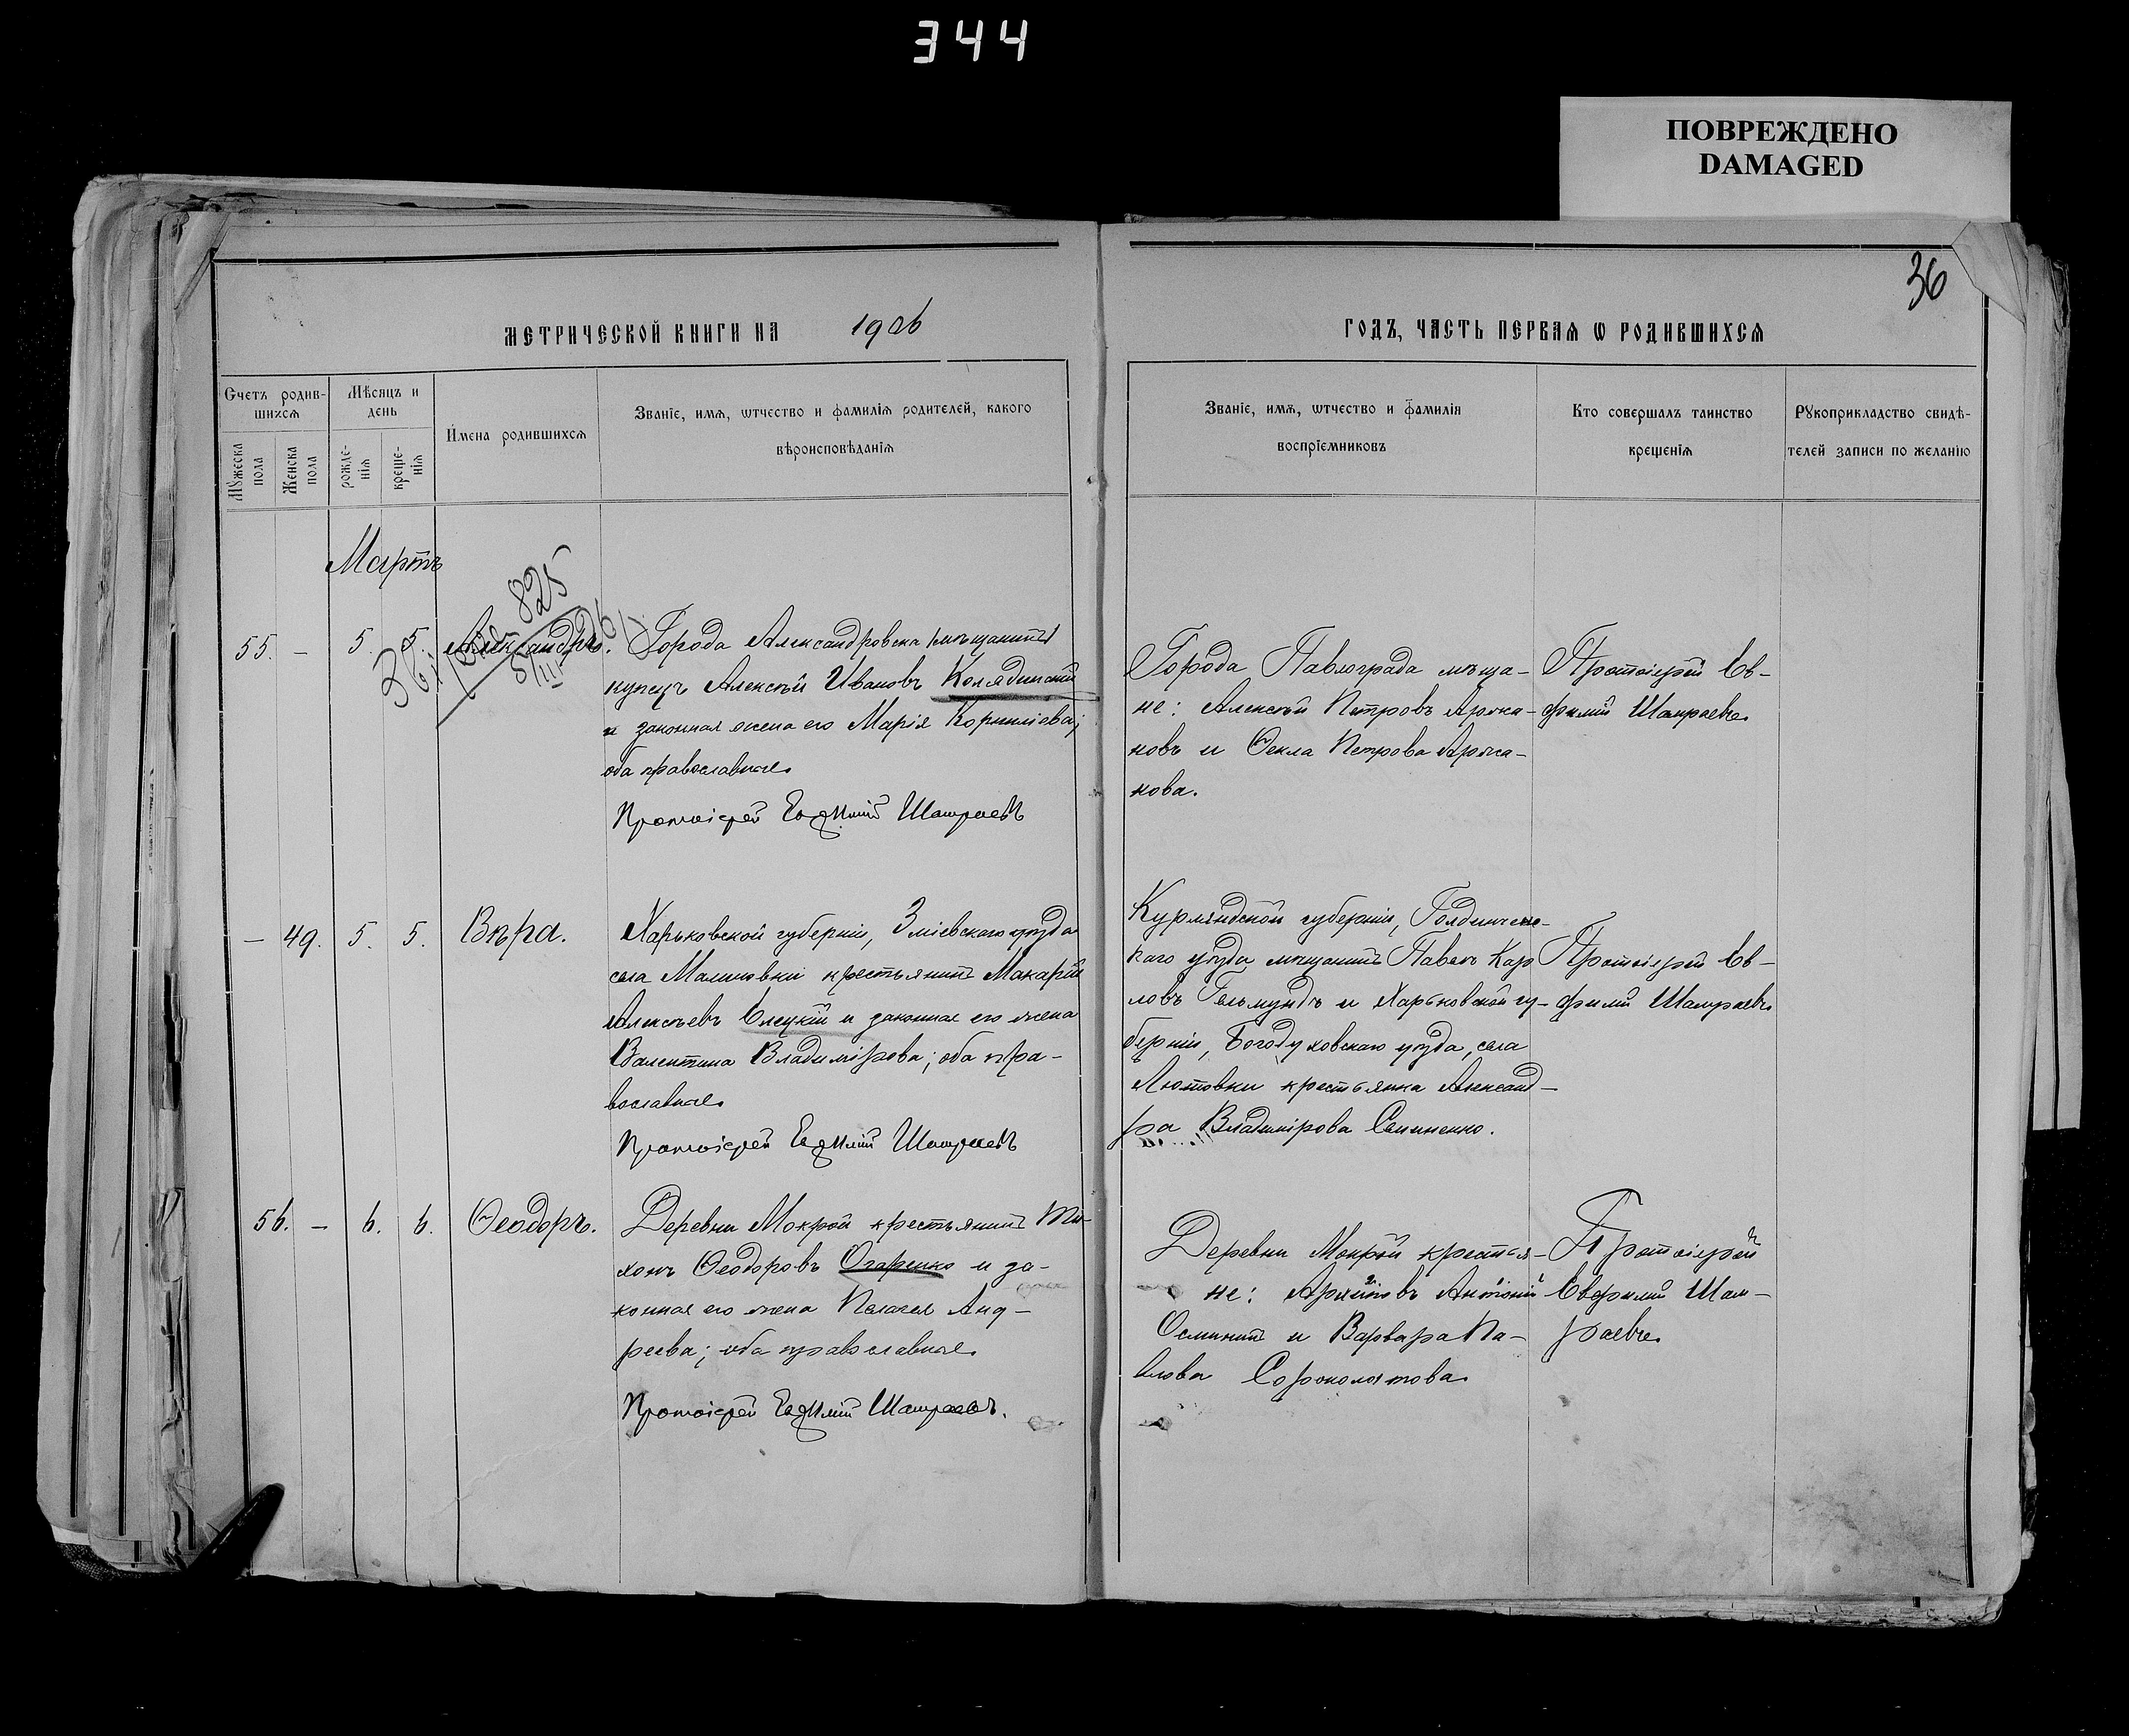 344
ПОВРЕЖДЕНО
DAMAGED
36
МЕТРИЧЕСКОЙ КНИГИ НА 1906
ГОДЪ, ЧАСТЬ ПЕРВАЯ Ѡ РОДИВШИХСЯ
Счетъ родив-
шихся
Мѣсяцъ и
день
Имена родившихся
Званіе, имя, ѡтчество и фамилія родителей, какого
вѣроисповѣданія
Мужеска
пола
Женска
пола
рожде-
нія
креще-
нія
Званіе, имя, ѡтчество и фамилія
воспріемниковъ
Кто совершалъ таинство
крещенія
Рукоприкладство свидѣ-
телей записи по желанію
Мартъ
825
55. – 5. 5. Александръ.
Города Александровска (мѣщанинъ)
купецъ Алексѣй Ивановъ Колядинскій
и законная жена его Марія Корниліева;
оба православные.
Протоіерей Евфимій Шамраевъ
Города Павлограда мѣща-
не: Алексѣй Петровъ Аржа-
новъ и Ѳекла Петрова Аржа-
нова.
Протоіерей Ев-
фимій Шамраевъ.
– 49. 5. 5. Вѣра.
Харьковской губерніи, Зміевскаго уѣзда
села Малиновки крестьянинъ Макарій
Алексѣевъ Елецкій и законная его жена
Валентина Владимірова; оба пра-
вославные.
Протоіерей Евфимій Шамраевъ
Курляндской губерніи, Голдингенс-
каго уѣзда мѣщанинъ Павелъ Кар
ловъ Гельмундъ и Харьковской гу-
берніи, Богодуховскаго уѣзда, села
Лютовки крестьянка Александ-
ра Владимірова Семененко.
Протоіерей Ев-
фимій Шамраевъ.
56. – 6. 6. Ѳеодоръ.
Деревни Мокрой крестьянинъ Ти-
хонъ Ѳеодоровъ Огаренко и за-
конная его жена Пелагея Анд-
реева; оба православные.
Протоіерей Евфимій Шамраевъ.
Деревни Мокрой крестья-
не: Антоній
и Варвара Па-
влова
Протоіерей
Евфимій Шам-
раевъ.